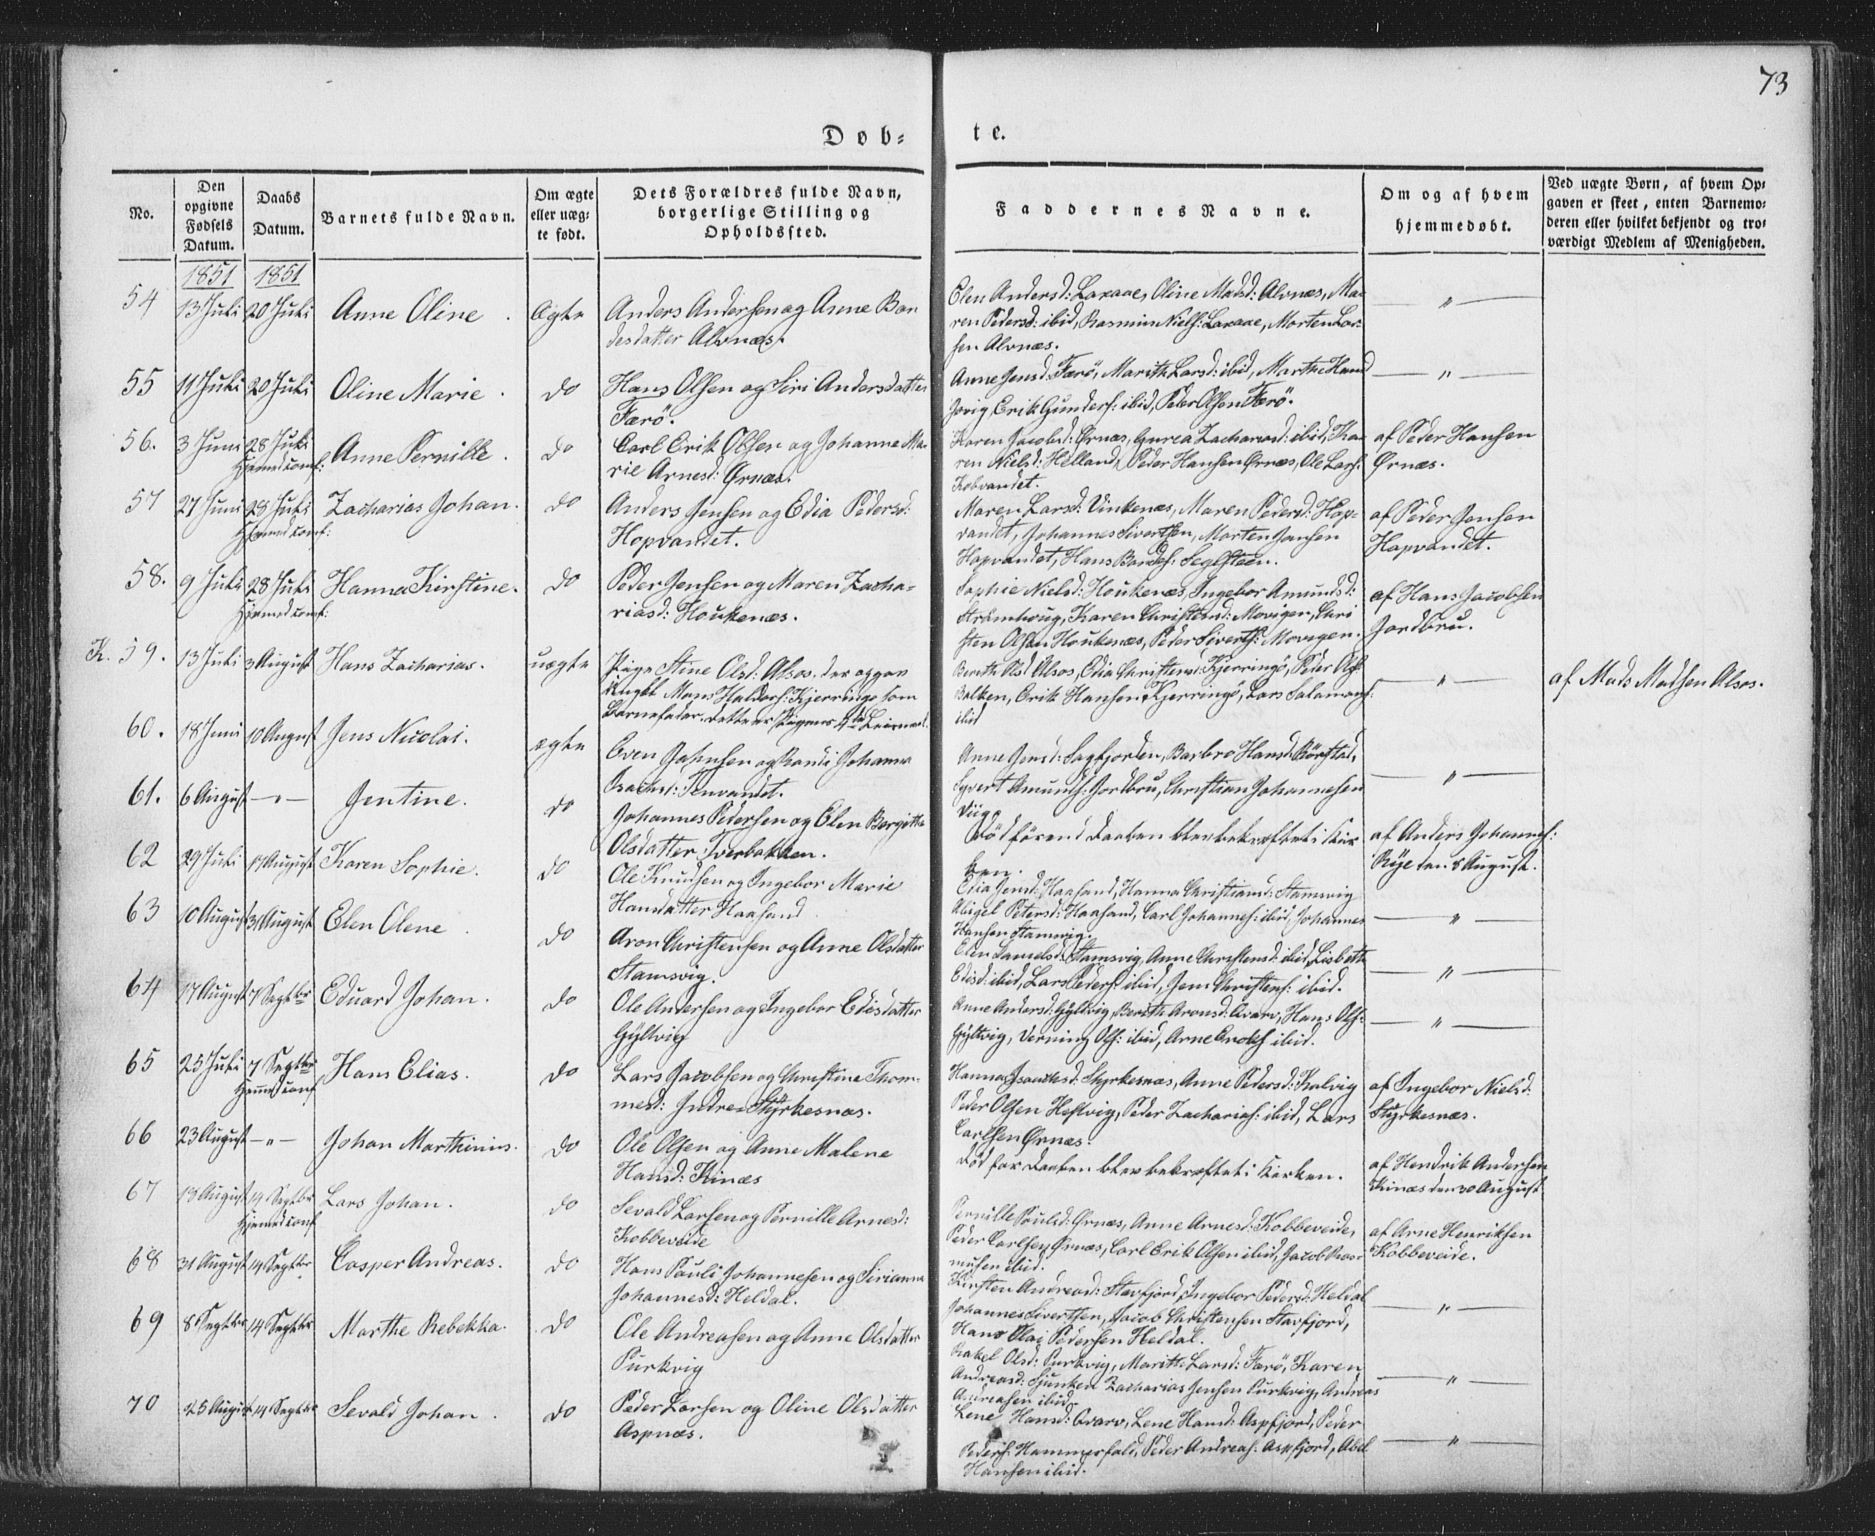 73
Døb-
te.
No.
Den opgivne Fødsels Datum.
Daabs Datum.
Barnets fulde Navn.
Om ægte eller uægte født.
Dets Forældres fulde Navn, borgerlige Stilling og Opholdssted.
Faddernes Navne.
Om og af hvem hjemmedøbt.
Ved uægte Børn, af hvem Op-
gaven er skeet, enten Barnemo-
deren eller hvilket bekjendt og tro-
værdigt Medlem af Menigheden.
1851 1851
54 13 Juli 20 Juli Anne Oline. Ægte Anders Andersen og Anne Ban
desdatter Alvnæs.
Elen Andersd: Laxaae, Oline Madsd: Alvnæs, Ma-
ren Pedersd: ibid, Rasmus Niels: Laxaae, Morten Lar-
sen Alvnæs.
— " —
55 11 Juli 20 Juli Oline Marie. do Hans Olsen og Siri Andersdatter
Færö.
Anne Jensd: Færö, Marith Larsd: ibid, Marthe Hansd
Jovig, Erik Gunders: ibid, Peder Olsen Færö.
— " —
56. 3 Juni 28 Juli Hjemed conf: Anne Pernille. do Carl Erik Olsen og Johanne Ma-
rie Arnesd: Ørnæs.
Karen Jacobsd: Ørnæs, Gurea Zachariasd: ibid, Ka-
ren Nielsd: Helland, Peder Hansen Ørnæs, Ole Lars:
Kobvandet.
af Peder Hansen
Ørnæs.
57 27 Juni 28 Juli Hjemed conf: Zacharias Johan. do Anders Jensen og Edia Pedersd:
Hopvandet.
Maren Larsd: Vinkenæs, Maren Pedersd: Hop-
vandet, Johannes Sivertsen, Morten Jensen
Hopvandet, Hans Bendix: Seglsteen.
af Peder Jensen
Hopvandet.
58. 9 Juli 28 Juli Hjemed conf: Hanna Kirstine. do Peder Jensen og Maren Zacha-
riasd: Houkenæs.
Sophie Nielsd: Houkenæs, Ingebor Amundsd:
Strømhoug, Karen Christensd: Movigen, Chri
sten Olsen Houkenæs, Peder Siverts: Movigen.
af Hans Jacobsen
Jordbru.
K. 59. 13 Juli 3 August Hans Zacharias. uægte Pige Stine Olsd: Alsos, der opgav
Ungkl Mons Haldors: Kjerringø som
Barnefader. Dette er Pigens 4de Leiermaal.
Berith Olsd Alsos, Edia Christensd: Kjerringø, Peder Ols:
Balken, Erik Hansen Kjerringø, Lars Salamons:
ibid
— " —
af Mads Madsen Alsos.
60. 18 Juni 10 August Jens Nicolai. ægte Even Johnsen og Randi Johanna
Isachsd: Tenvandet.
Anne Jensd: Sagfjorden, Barbro Hansd: Börstad,
Syvert Amunds: Jordbru, Christian Johannesen
Viig.
— " —
61. 6 August — " — Jentine. do Johannes Pedersen og Elen Bergitte
Olsdatter Tverbakken.
Död förend Daaben blev bekræftet i Kir-
ken.
af Anders Johannes:
Röje den 8 August.
62 29 Juli 17 August Karen Sophie. do Ole Knudsen og Ingebor Marie
Hansdatter Haasand
Edia Jensd: Haasand, Hanna Christiansd: Stamsvig
Abigel Petersd: Haasand, Carl Johannes: ibid, Johannes
Hansen Stamsvig.
— " —
63 10 August 31 August Elen Olene. do Aron Christensen og Anne Olsdatter
Stamsvig.
Elen Danielsd: Stamsvig, Anne Christensd: ibid, Lisbeth
Edisd: ibid, Lars Peders: ibid, Jens Christens: ibid.
— " —
64 17 August 7 Septbr Eduard Johan. do Ole Andersen og Ingebor Edisdatter
Gyltvig
Anne Andersd: Gyltvig, Berith Aronsd: Qvarv, Hans Ols:
Gyltvig, Verning Ols: ibid, Arne Arnts: ibid.
— " —
65 25 Juli 7 Septbr Hjemed conf Hans Elias. do Lars Jacobsen og Christine Thom-
mesd: Indre Styrkesnæs.
Hanna Isachsd: Styrkesnæs, Anne Pedersd: Kalvig
Peder Olsen Hestvig, Peder Zacharias: ibid, Lars
Carlsen Ørnæs.
af Ingebor Nielsd:
Styrkesnæs.
66 23 August — " — Johan Marthinus. do Ole Olsen og Anne Malene
Hansd: Kinæs
Död før Daaben blev bekræftet i Kirken.
af Hendrik Andersen
Kinæs den 30 August
67 13 August 14 Septbr Hjemed conf Lars Johan. do Sevald Larsen og Pernille Arnesd:
Kobbeveide
Pernille Poulsd: Ørnæs, Anne Arnesd: Kobbeveide,
Peder Carlsen Ørnæs, Carl Erik Olsen ibid, Jacob Ras-
musen ibid.
af Arne Henriksen
Kobbeveide.
68 31 August 14 Septbr Casper Andreas. do Hans Pauli Johannesen og Sirianna
Johannesd: Heldal.
Kirsten Andreasd: Stavfjord, Ingebor Pedersd: Heldal
Johannes Sivertsen, Jacob Christensen Stavfjord,
Hans Olai Pedersen Heldal.
— " —
69 8 Septbr 14 Septbr Marthe Rebekka. do Ole Andreasen og Anne Olsdatter
Purkvig
Rakel Olsd: Purkvig, Marith Larsd: Færö, Karen
Andreasd: Sjunken Zacharias Jensen Purkvig, Andreas
Andreasen ibid.
— " —
70 25 August 14 Septbr Sevald Johan. do Peder Larsen og Oline Olsdatter
Aspnæs.
Lene Hansd: Qvarv, Lene Hansd: Aspfjord, Peder
Peders: Hammerfald, Peder Andreas: Aspfjord, Abel
Hansen ibid.
— " —